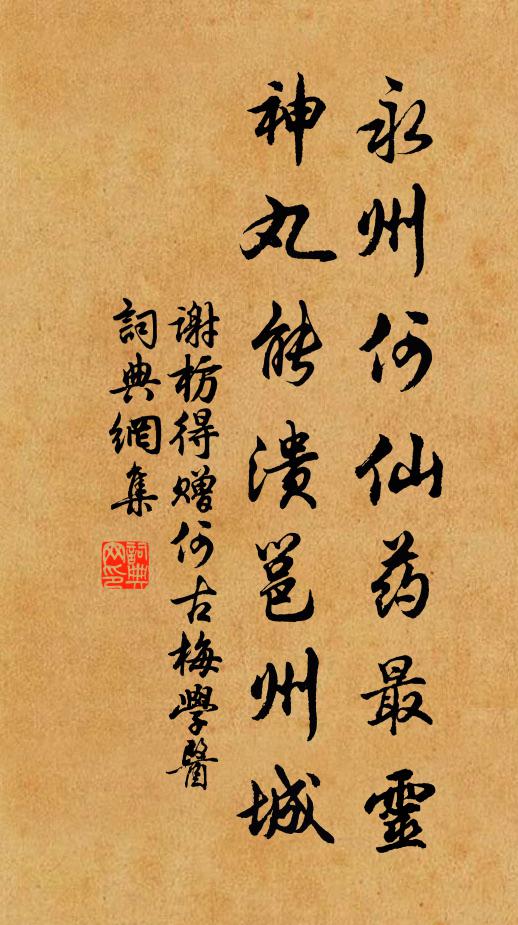 永州何仙药最靈
神丸能潰邕州城
谢枋得赠何古梅學醫
詞典網集
詞典网印